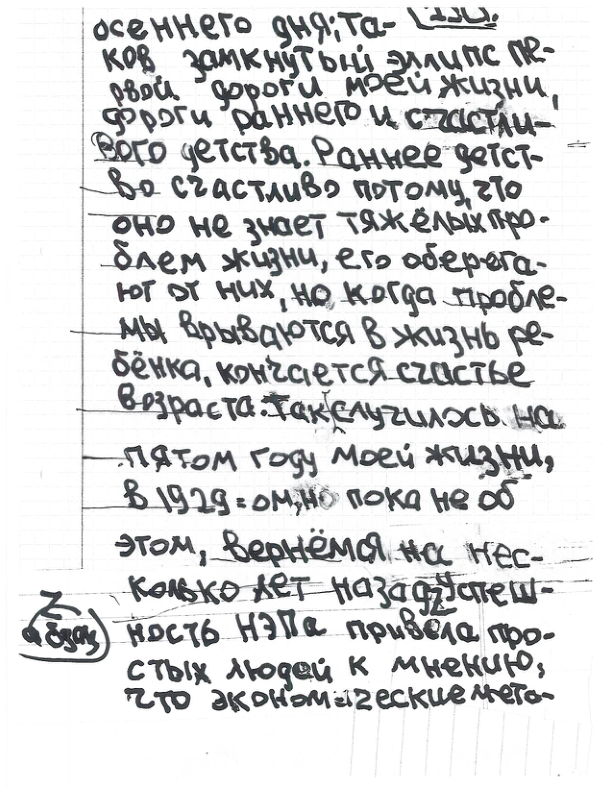 осеннего дня; та-
ков замкнутый эллипс пе-
рвой дороги моей жизни,
дороги раннего и счастли-
вого детства. Раннее детст-
во счастливо потому, что
оно не знает тяжёлых про-
блем жизни, его оберега-
ют от них, но когда пробле-
мы врываются в жизнь ре-
бёнка, кончается счастье
возраста. Так случилось на
пятом году моей жизни,
в 1929=ом, но пока не об
этом, вернёмся на нес-
колько лет назад. Успеш-
абзац
ность НЭПа привела про-
стых людей к мнению,
что экономические мето-